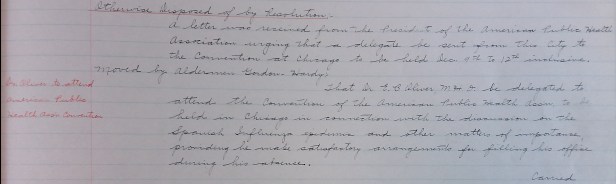 Otherwise Disposed of by Resolution.
A letter was received from the President of the American Public Health
Association urging that a delegate be sent from this City to
the Convention at Chicago to be held Dec. 9th to 12th inclusive.
Moved by Aldermen Gadon. Hardy;
Dr Oliver to attend
American Public
Health Assn Convention
That Dr. E B Oliver, M.H.O. be delegated to
attend the Convention of the American Public Health Assn to be
held in Chicago in connection with the discussion on the
Spanish Influenza epidemic and other matters of importance,
providing he make satisfactory arrangements for filling his office
during his absence.
Carried